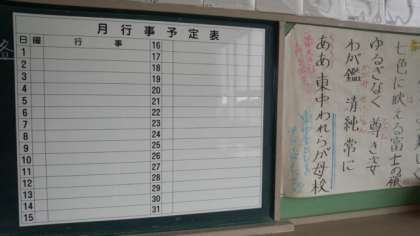 月行事予定表
日 曜 行事
1 16
2 17
3 18
4 19
5 20
6 21
7 22
8 23
9 24
10 25
11 26
12 27
13 28
14 29
15 30
31
七色に映える富士の嶺
ゆるぎなく 尊き姿
わが鑑 清純常に
ああ 東中われらが母校